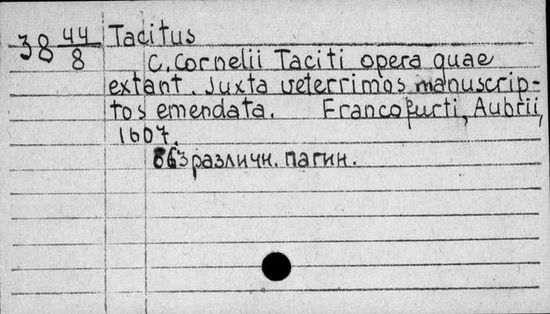 38 44/8 Tacitus
C. Cornelii Taciti opera quae
extant. Juxta veterrimos manuscrip-
tos emendata. Francofurti, Aubrii,
1607.
663 различн. пагин.